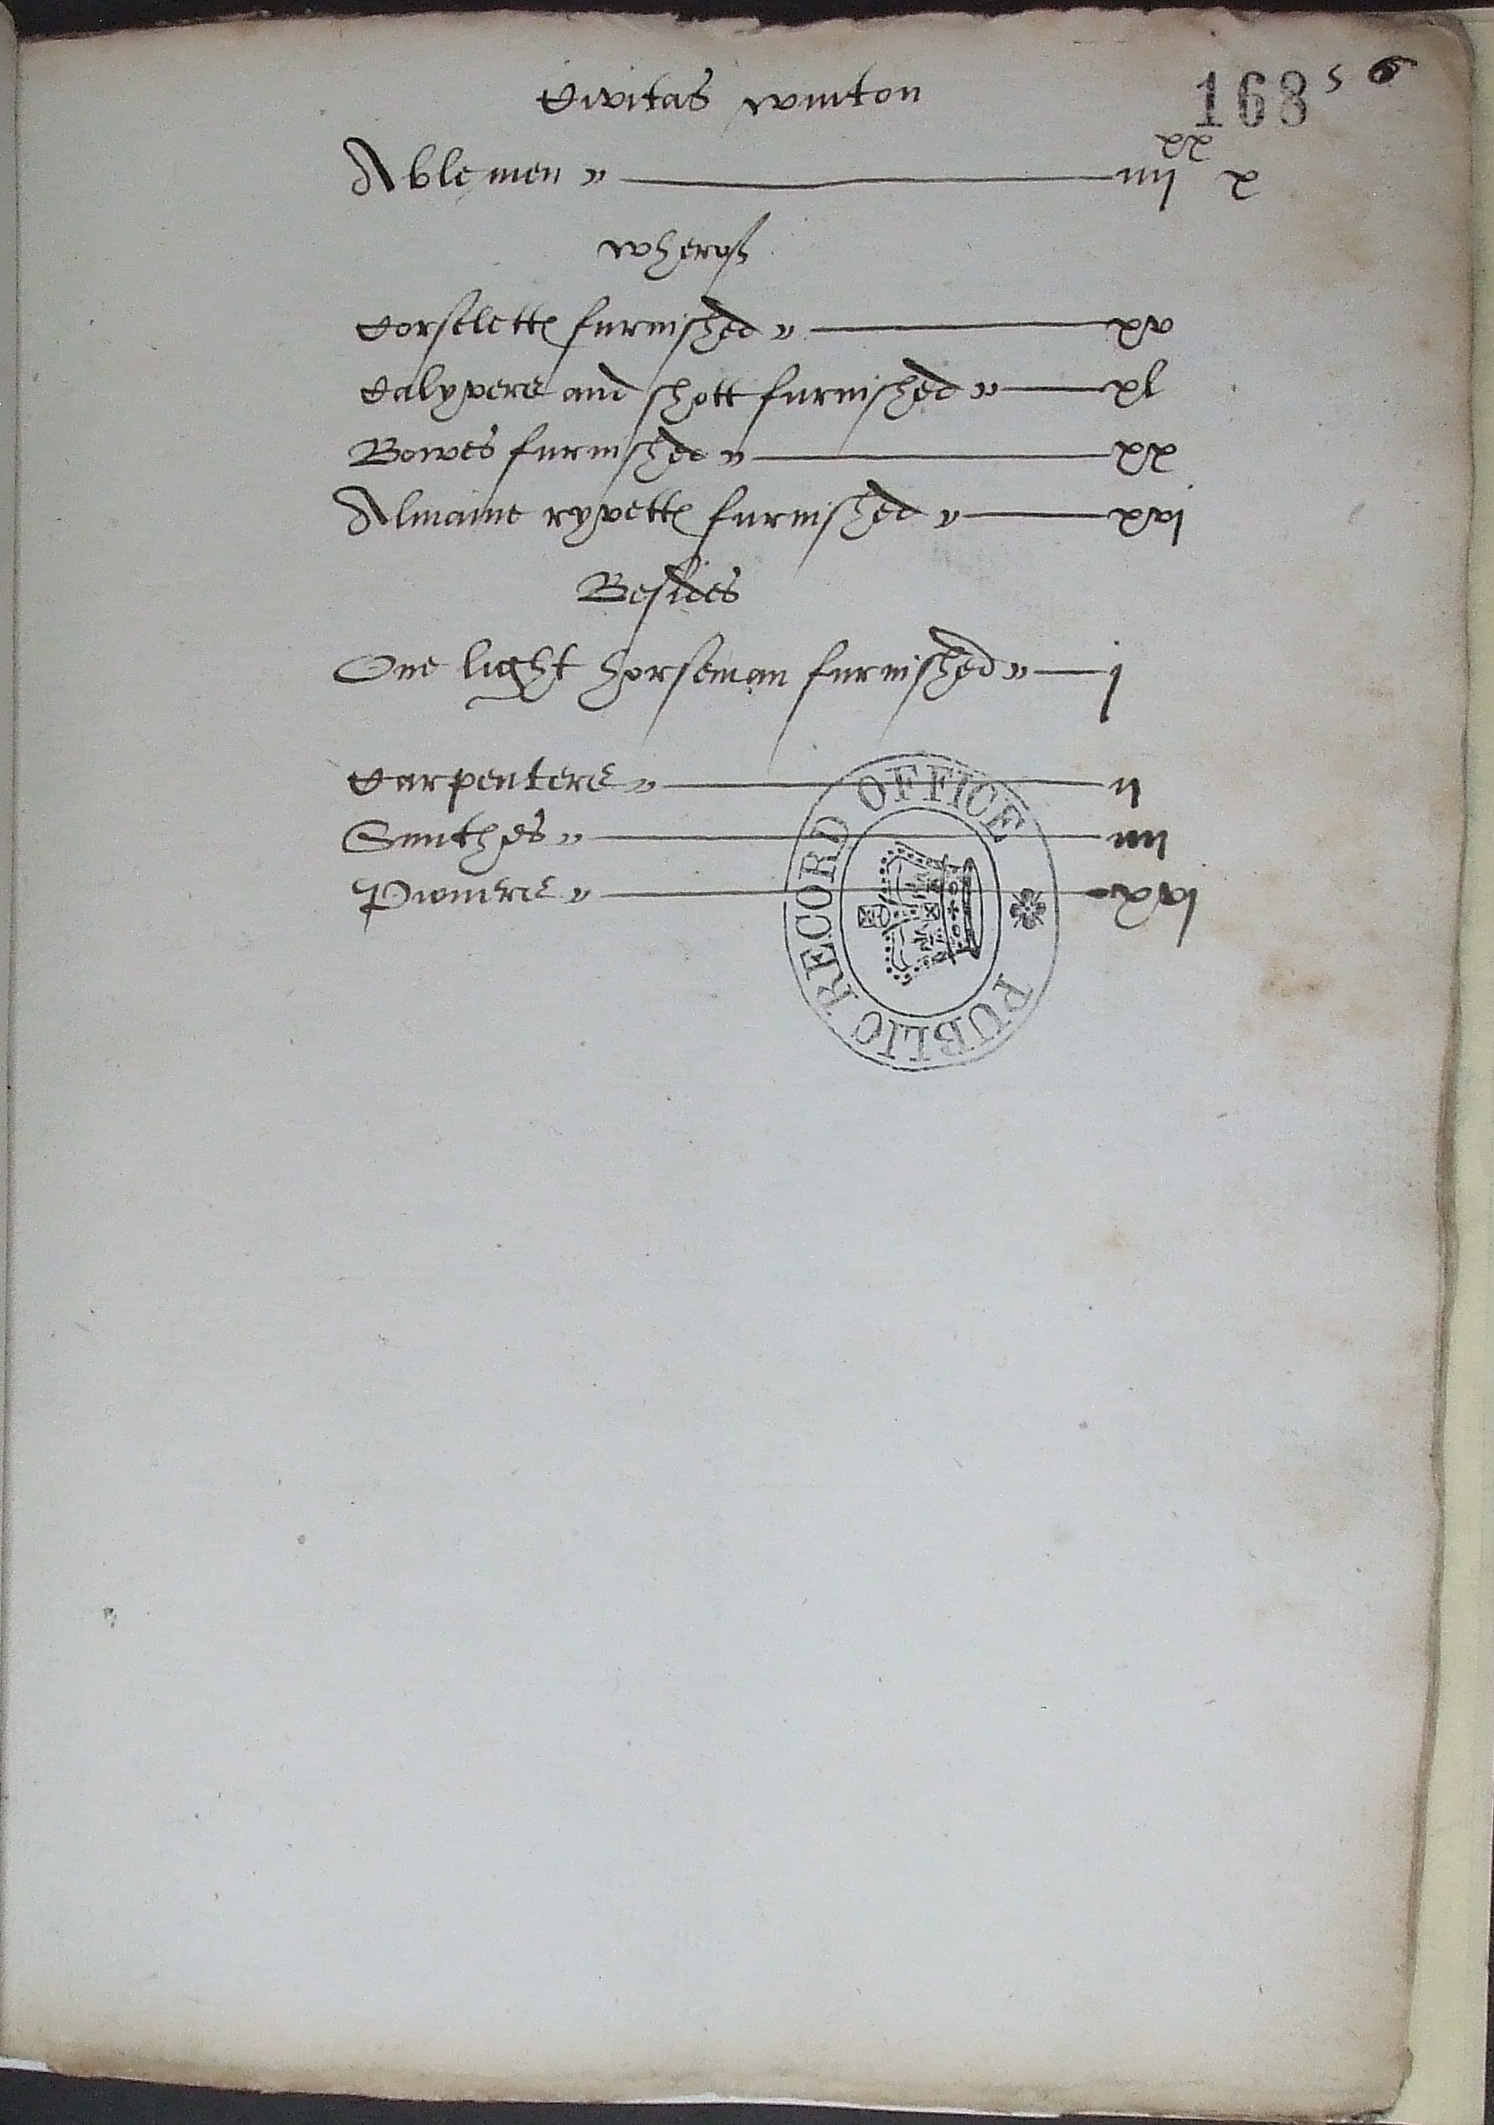 Civitas winton
168 5 6
Able men iiij xx x
wherof
Corselettes furnished xv
Calyvers and shott furnished xl
Bowes furnished xx
Almaine ryvettes furnished xvj
Besides
One light horseman furnished j
Carpenters ij
Smithes iiij
Pioners xvj
PUBLIC RECORD OFFICE